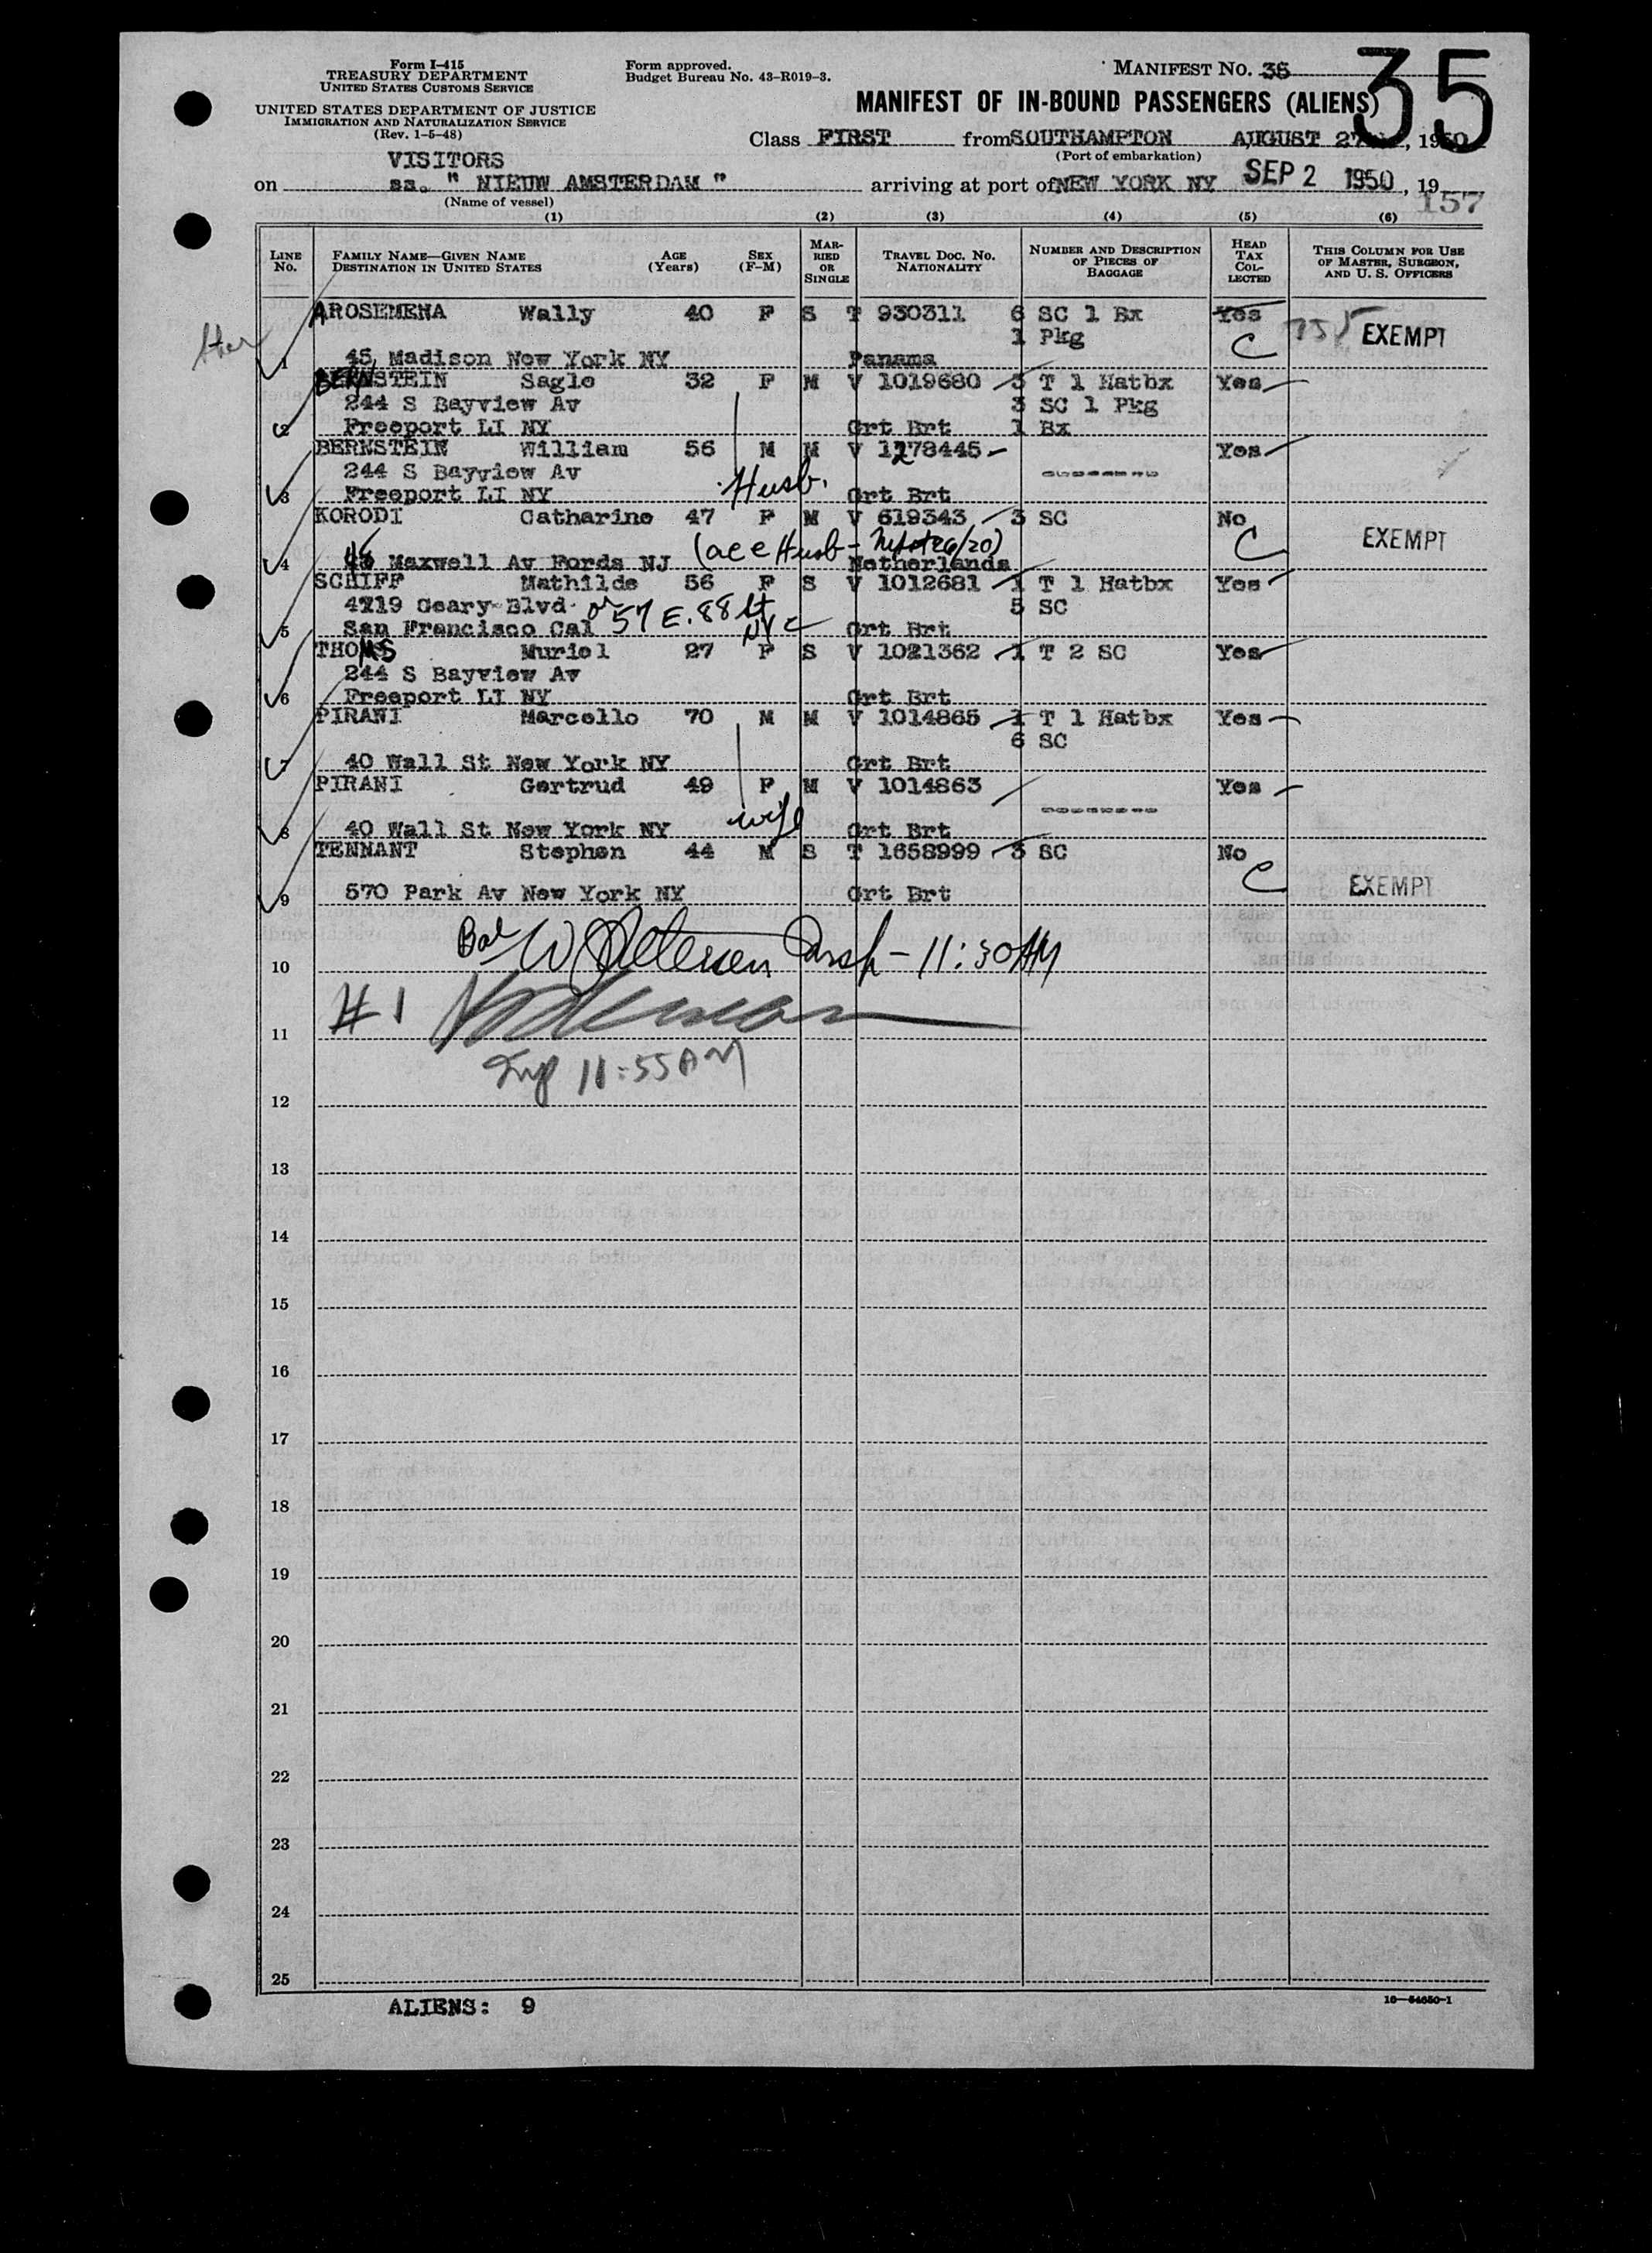 Form I-415
TREASURY DEPARTMENT
UNITED STATES CUSTOMS SERVICE
UNITED STATES DEPARTMENT OF JUSTICE
IMMIGRATION AND NATURALIZATION SERVICE
(Rev. 1-5-48)
Form approved.
Budget Bureau No. 43-R019-3.
MANIFEST No. 36
35
MANIFEST OF IN-BOUND PASSENGERS (ALIENS)
Class FIRST from SOUTHAMPTON AUGUST 27, 1950
(Port of embarkation)
VISITORS
on ss. " NIEUW AMSTERDAM " arriving at port of NEW YORK NY SEP 2 1950, 19
(Name of vessel)
157
(1) (2) (3) (4) (5) (6)
LINE No. FAMILY NAME—GIVEN NAME DESTINATION IN UNITED STATES AGE (Years) SEX (F-M) MARRIED OR SINGLE TRAVEL DOC. NO. NATIONALITY NUMBER AND DESCRIPTION OF PIECES OF BAGGAGE HEAD TAX COLLECTED THIS COLUMN FOR USE OF MASTER, SURGEON, AND U. S. OFFICERS
AROSEMENA Wally 40 F S T 930311 6 SC 1 Bx Yes
1 Pkg C EXEMPT
1 45, Madison New York NY Panama
BERNSTEIN Saglo 32 F M V 1019680 3 T 1 Hatbx Yes
244 S Bayview Av 3 SC 1 Pkg
2 Freeport LI NY Grt Brt 1 Bx
BERNSTEIN William 56 M M V 1278445 Yes
244 S Bayview Av --------
3 Freeport LI NY Husb. Grt Brt
KORODI Catharine 47 F M V 619343 3 SC No
(acc Husb - C EXEMPT
4 Maxwell Av Fords NJ Netherlands
SCHIFF Mathilde 56 F S V 1012681 1 T 1 Hatbx Yes
4219 Geary Blvd or 57 E. 88 St 5 SC
5 San Francisco Cal NYC Grt Brt
THOMS Muriel 27 F S V 1021362 1 T 2 SC Yes
244 S Bayview Av
6 Freeport LI NY Grt Brt
PIRANI Marcello 70 M M V 1014865 1 T 1 Hatbx Yes
6 SC
7 40 Wall St New York NY Grt Brt
PIRANI Gertrud 49 F M V 1014863 Yes
--------
8 40 Wall St New York NY wife Grt Brt
TENNANT Stephen 44 M S T 1658999 3 SC No
C EXEMPT
9 570 Park Av New York NY Grt Brt
W Petersen - 11:30 AM
10
#1
11
11:55 AM
12
13
14
15
16
17
18
19
20
21
22
23
24
25
ALIENS: 9
16—54650-1